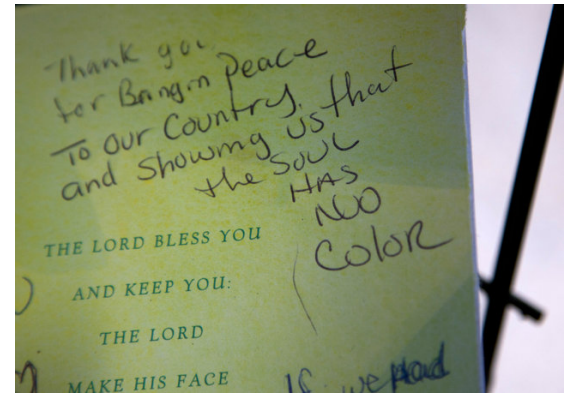 Thank you
for Bringin Peace
To Our Country,
and Showing us that
the SOUL
HAS
NO
COLOR
THE LORD BLESS YOU
AND KEEP YOU:
THE LORD
MAKE HIS FACE
If we